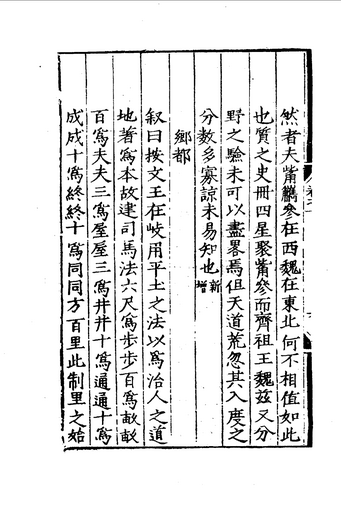 然者夫觜觿參在西魏在東北何不相值如此
也質之史冊四星聚觜參而齊祖王魏茲又分
野之驗未可以盡畧焉但天道荒忽其入度之
分數多寡諒未易知也新增
鄉都
叙曰按文王在岐用平土之法以爲治人之道
地著爲本故建司馬法六尺爲步步百爲畝畝
百爲夫夫三爲屋屋三爲井井十爲通通十爲
成成十爲終終十爲同同方百里此制里之始